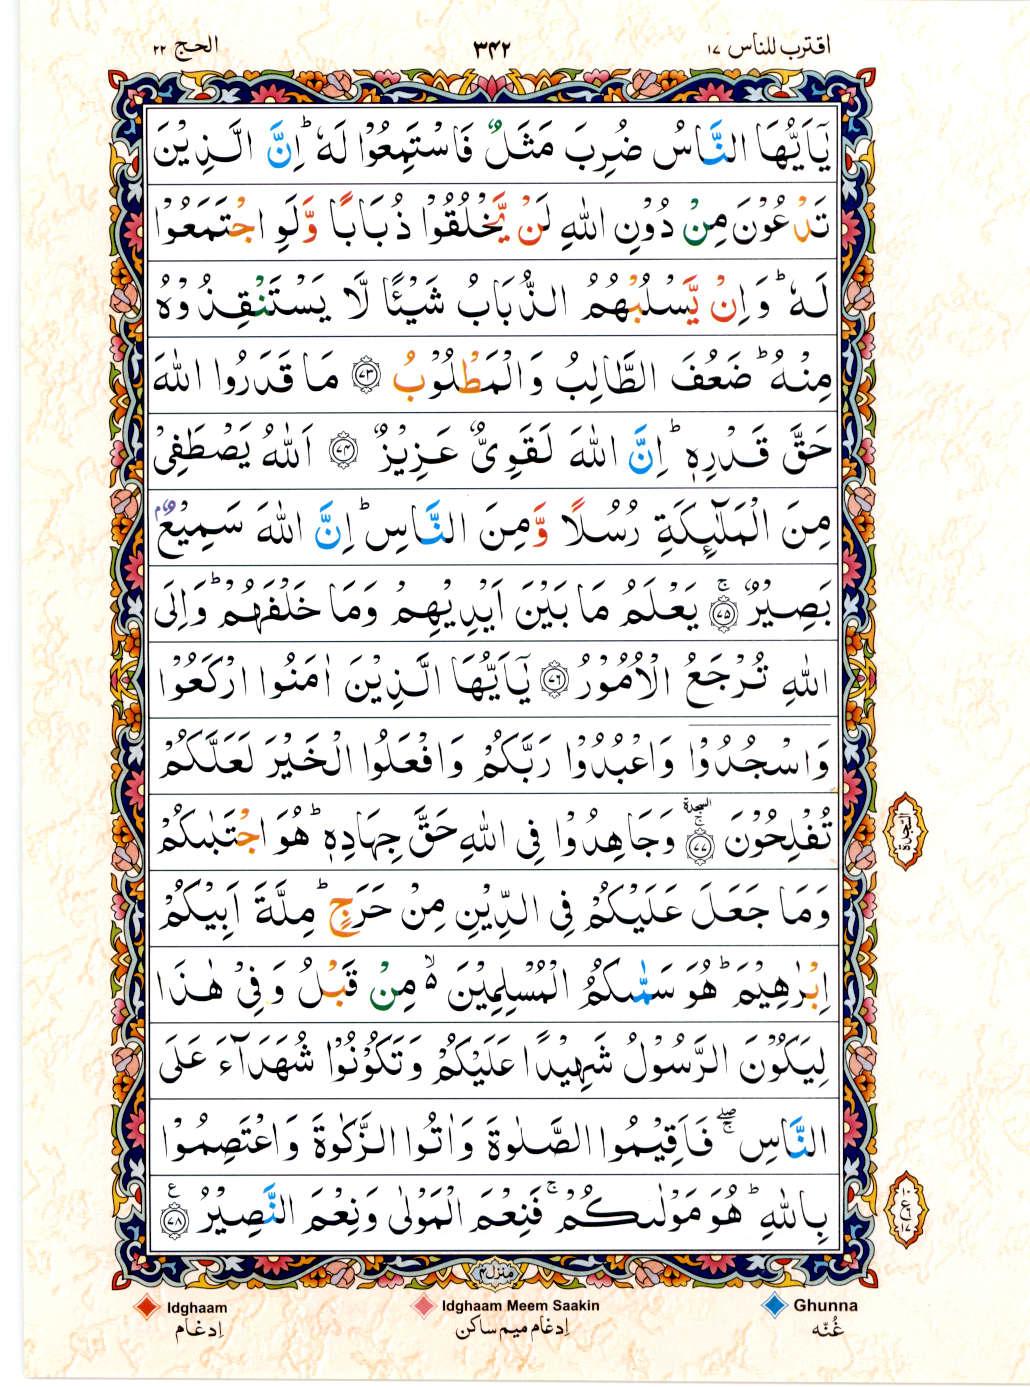 اقترب للناس ١٧
٣٤٢
الحج ٢٢
يٰۤاَيُّهَا النَّاسُ ضُرِبَ مَثَلٌ فَاسْتَمِعُوْا لَهٗ ؕ اِنَّ الَّذِيْنَ
تَدْعُوْنَ مِنْ دُوْنِ اللّٰهِ لَنْ يَّخْلُقُوْا ذُبَابًا وَّلَوِ اجْتَمَعُوْا
لَهٗ ؕ وَاِنْ يَّسْلُبْهُمُ الذُّبَابُ شَيْـًٔا لَّا يَسْتَنْقِذُوْهُ
مِنْهُ ؕ ضَعُفَ الطَّالِبُ وَالْمَطْلُوْبُ ﴿٧٣﴾ مَا قَدَرُوا اللّٰهَ
حَقَّ قَدْرِهٖ ؕ اِنَّ اللّٰهَ لَقَوِىٌّ عَزِيْزٌ ﴿٧٤﴾ اَللّٰهُ يَصْطَفِىْ
مِنَ الْمَلٰٓئِكَةِ رُسُلًا وَّمِنَ النَّاسِ ؕ اِنَّ اللّٰهَ سَمِيْعٌۢ
بَصِيْرٌ ۚ﴿٧٥﴾ يَعْلَمُ مَا بَيْنَ اَيْدِيْهِمْ وَمَا خَلْفَهُمْ ؕ وَاِلَى
اللّٰهِ تُرْجَعُ الْاُمُوْرُ ﴿٧٦﴾ يٰۤاَيُّهَا الَّذِيْنَ اٰمَنُوا ارْكَعُوْا
وَاسْجُدُوْا وَاعْبُدُوْا رَبَّكُمْ وَافْعَلُوا الْخَيْرَ لَعَلَّكُمْ
تُفْلِحُوْنَ ۚ السجدة ﴿٧٧﴾ وَجَاهِدُوْا فِى اللّٰهِ حَقَّ جِهَادِهٖ ؕ هُوَ اجْتَبٰىكُمْ
السجدة
وَمَا جَعَلَ عَلَيْكُمْ فِى الدِّيْنِ مِنْ حَرَجٍ ؕ مِلَّةَ اَبِيْكُمْ
اِبْرٰهِيْمَ ؕ هُوَ سَمّٰىكُمُ الْمُسْلِمِيْنَ ۙ۬ مِنْ قَبْلُ وَ فِىْ هٰذَا
لِيَكُوْنَ الرَّسُوْلُ شَهِيْدًا عَلَيْكُمْ وَتَكُوْنُوْا شُهَدَآءَ عَلَى
النَّاسِ ۖۚ فَاَقِيْمُوا الصَّلٰوةَ وَاٰتُوا الزَّكٰوةَ وَاعْتَصِمُوْا
بِاللّٰهِ ؕ هُوَ مَوْلٰىكُمْ ۚ فَنِعْمَ الْمَوْلٰى وَنِعْمَ النَّصِيْرُ ﴿٧٨﴾ ع
١٠ ع ١٧
منزل ٤
Idghaam
Idghaam Meem Saakin
Ghunna
اِدغام
اِدغام میم ساکن
غُنّہ